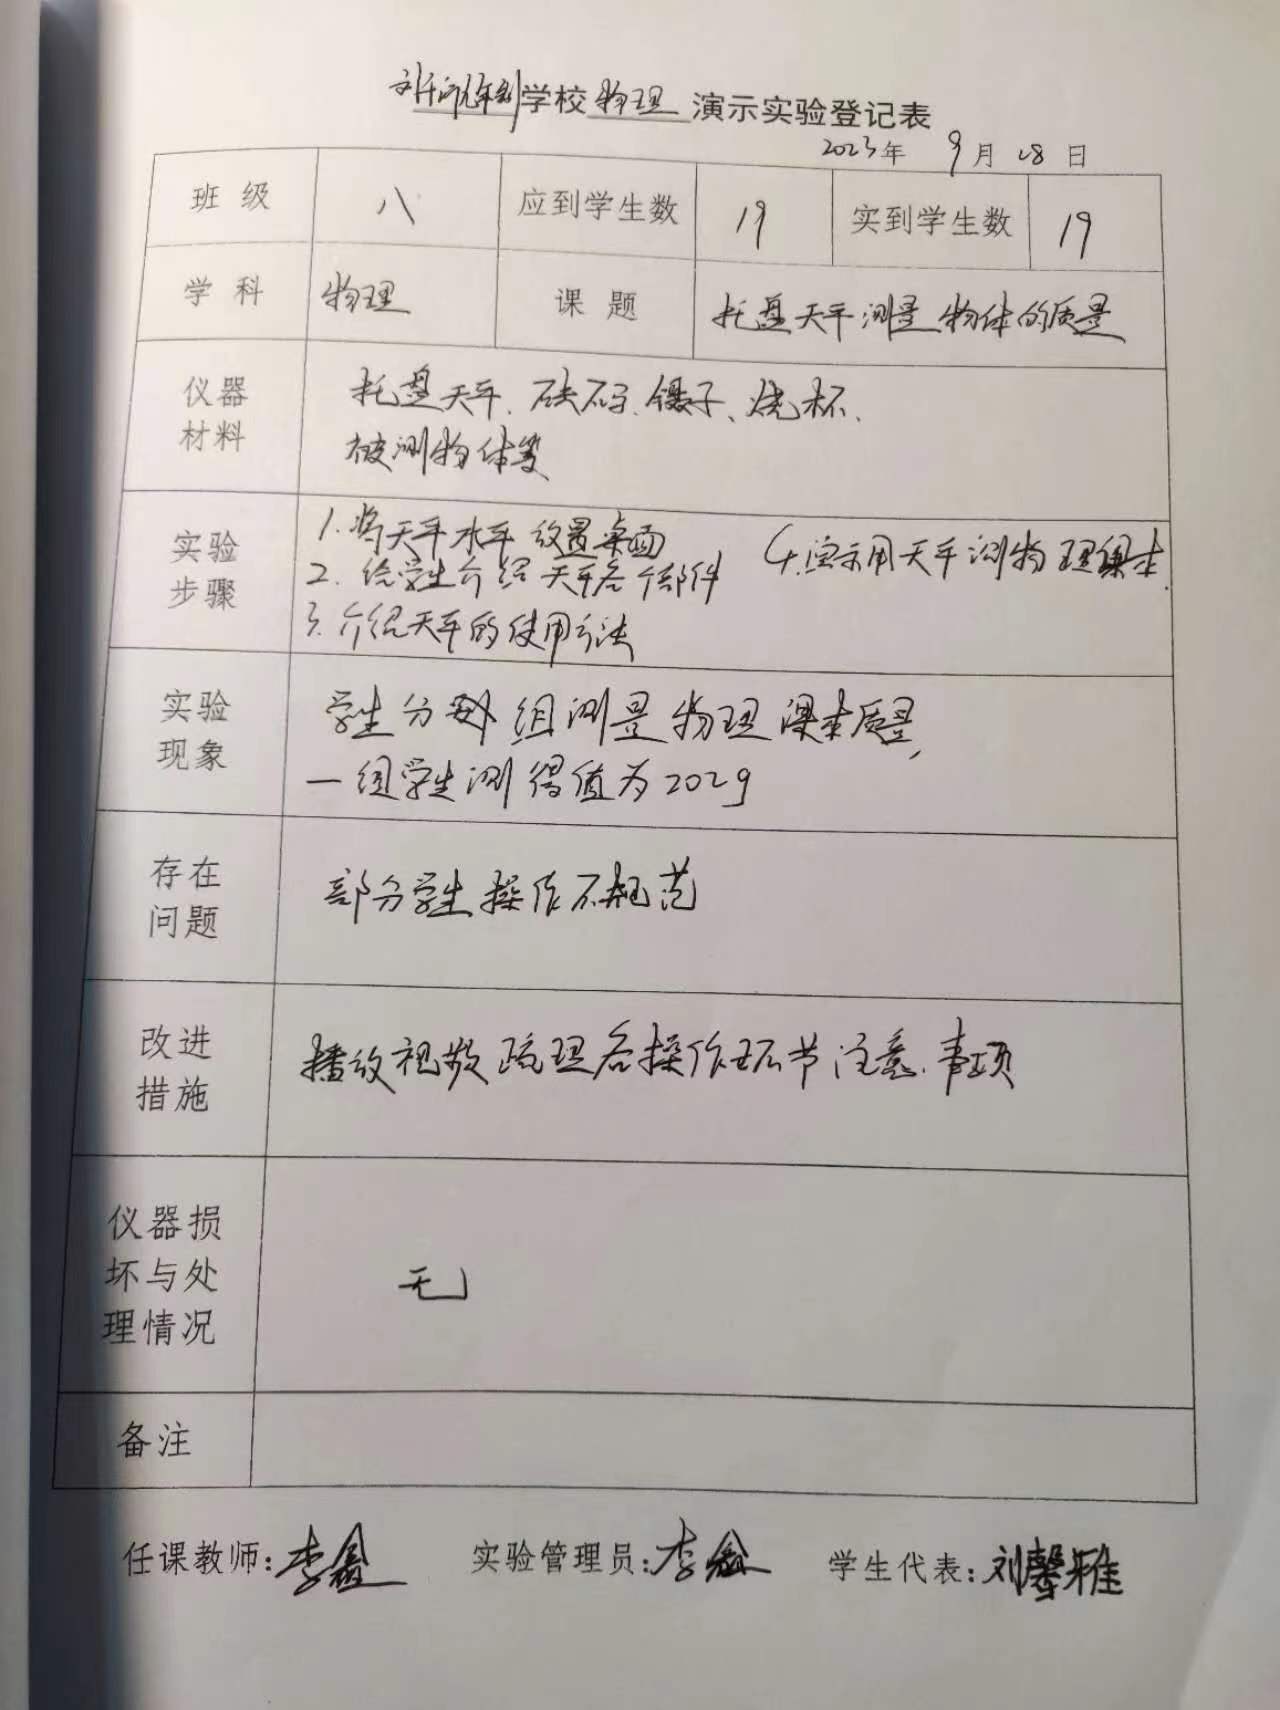 学校物理演示实验登记表
2023年 9月28日
班级 八 应到学生数 19 实到学生数 19
学科 物理 课题 托盘天平测量物体的质量
仪器材料 托盘天平、砝码、镊子、烧杯、
被测物体等
实验步骤 1.将天平水平放置桌面
2.给学生介绍天平各个部件
3.介绍天平的使用方法
4.演示用天平测物理课本.
实验现象 学生分组测量物理课本质量,
一组学生测得值为202g
存在问题 部分学生操作不规范
改进措施 播放视频梳理各操作环节注意事项
仪器损坏与处理情况 无
备注
任课教师:李鑫 实验管理员:李鑫 学生代表:刘馨雅